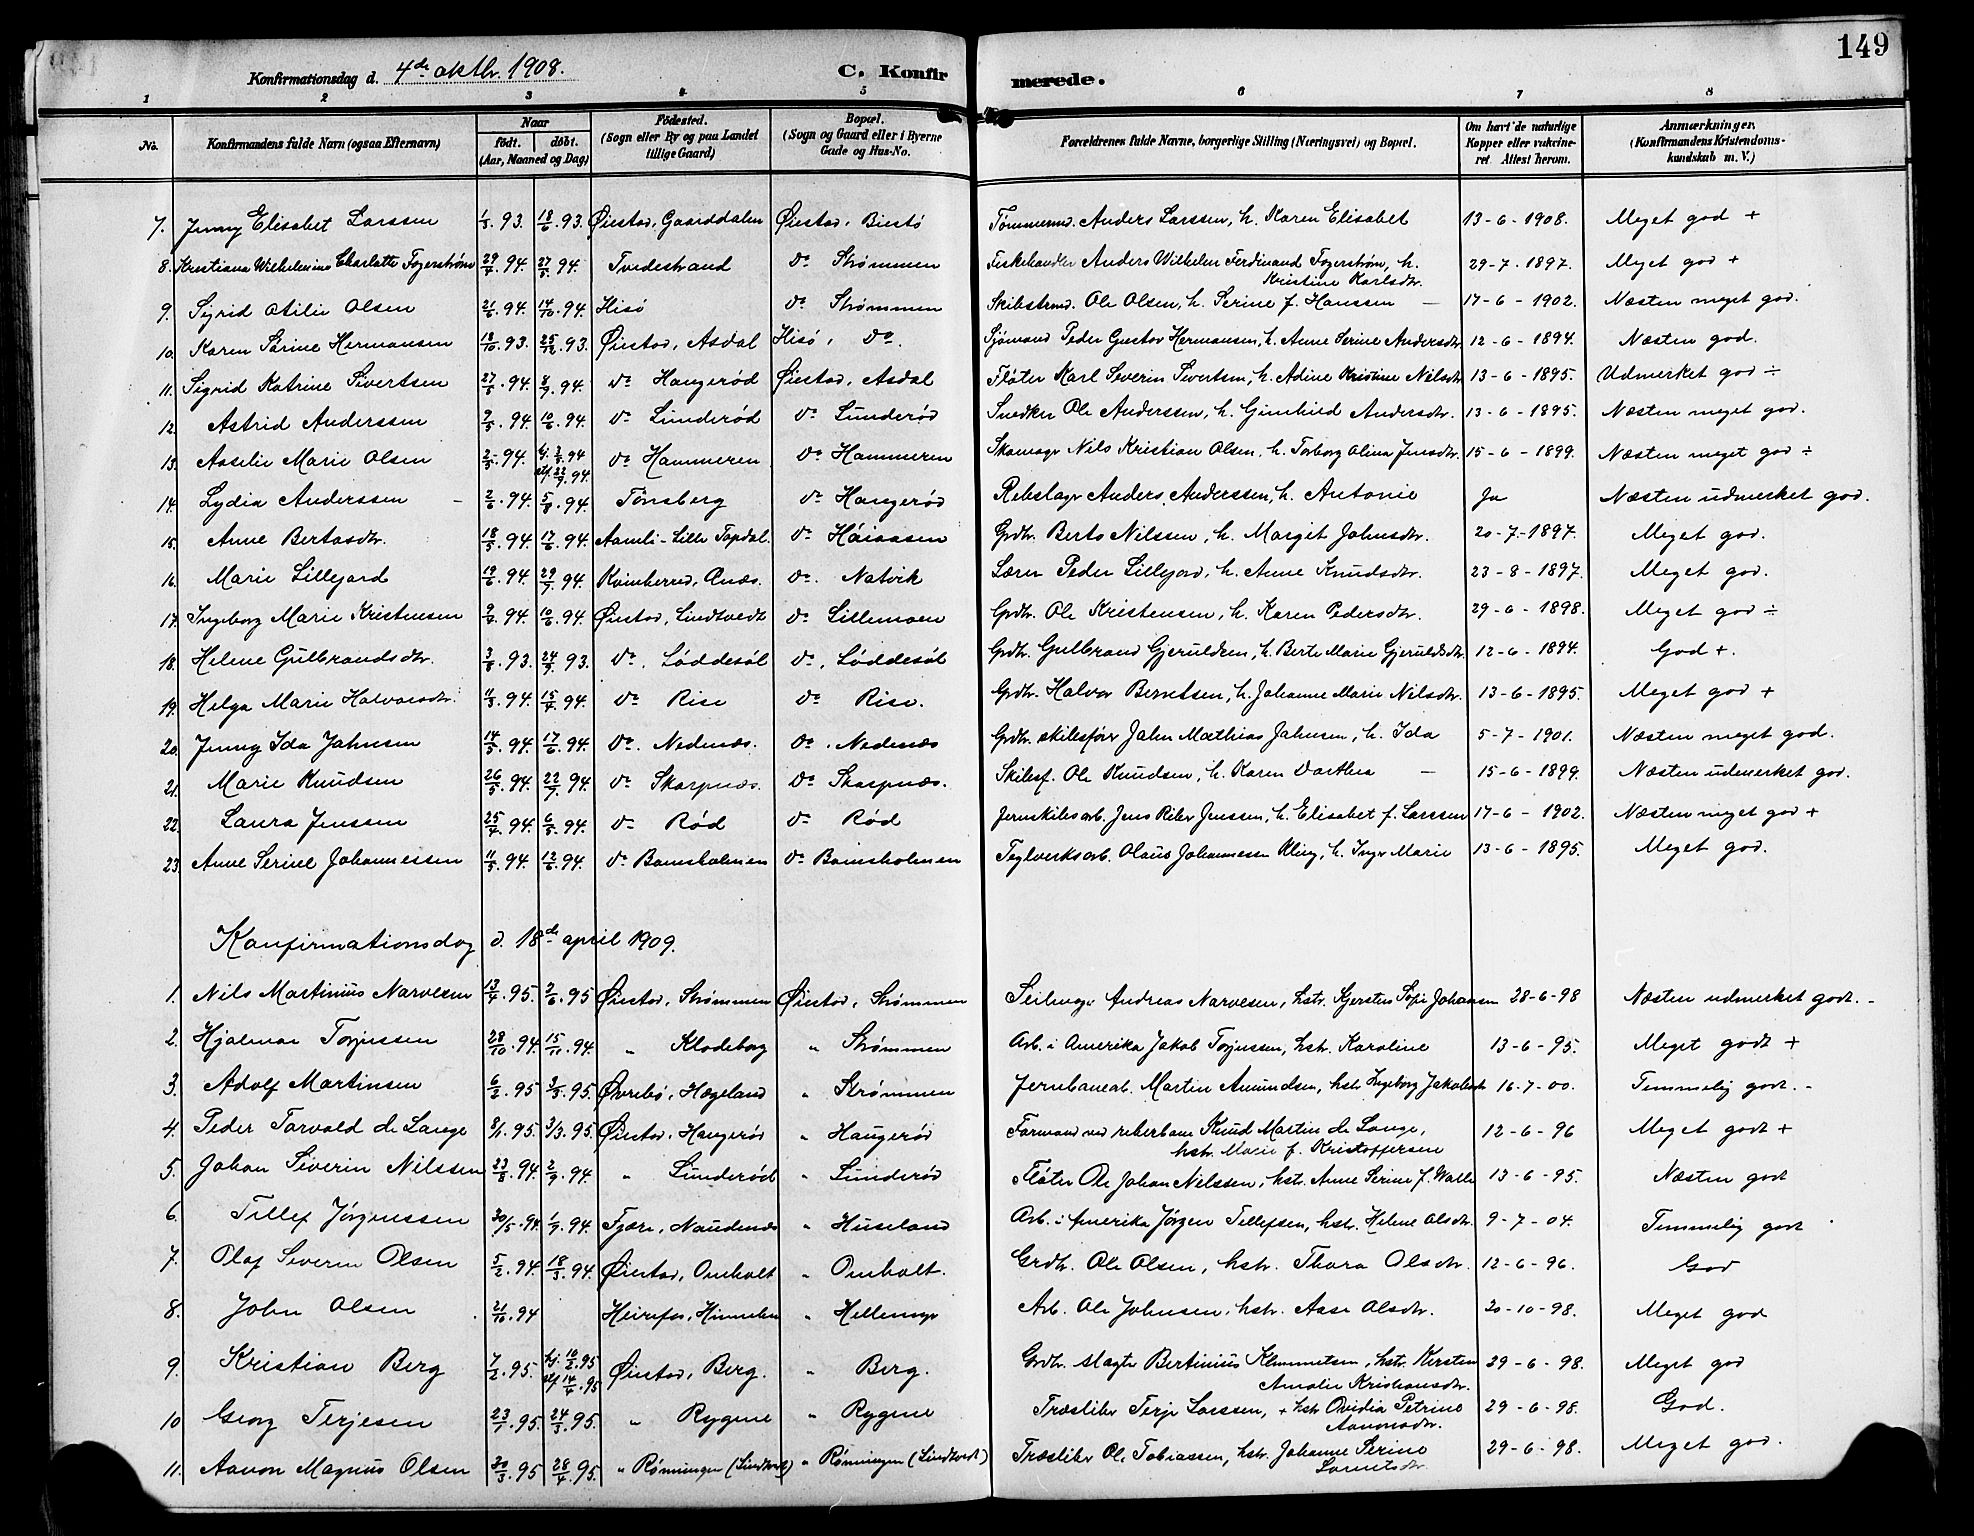 149
Konfirmationsdag d. 4de oktbr. 1908. C. Konfirmerede.
1 2 3 4 5 6 7 8
No. Konfirmandens fulde Navn (ogsaa Efternavn) Naar født. døbt. (Aar, Maaned og Dag) Fødested. (Sogn eller By og paa Landet tillige Gaard) Bopæl. (Sogn og Gaard eller i Byerne Gade og Hus-No. Forældrenes fulde Navne, borgerlige Stilling (Næringsvei) og Bopæl. Om havt de naturlige Kopper eller vakcineret. Attest herom. Anmærkninger. (Konfirmandens Kristendomskundskab m. V.)
7. Jenny Elisabet Larssen 1/3.93. 18/6.93. Øiestad, Gaarddalen Øiestad, Biestø Tømmermd. Anders Larssen, h. Karen Elisabet 13-6-1908. Meget god +
8. Kristiana Wilhelmine Charlotte Fogerstrøm 29/7.94. 27/8.94. Tvedestrand do Strømmen Fiskehandler Anders Wilhelm Ferdinand Fogerstrøm, h. Kristine Karlsdtr. 29-7-1897. Meget god +
9. Sigrid Otilie Olsen 21/6.94. 14/10.94. Hisø do Strømmen Skibstmd. Ole Olsen, h. Serine f. Hanssen — 17-6-1902. Næsten meget god.
10. Karen Sørine Hermansen 18/10.93. 25/12.93. Øiestad, Asdal Hisø, do. Sjømand Peder Gustav Hermansen, h. Anne Serine Andersdtr 12-6-1894. Næsten god.
11. Sigrid Katrine Sivertsen 27/6.94. 8/7.94. do Haugerød Øiestad, Asdal Fløter Karl Severin Sivertsen, h. Adine Kristine Nilsdtr 13-6-1895. Udmerket god ÷
12. Astrid Anderssen 9/5.94. 10/6.94. do Lunderød do Lunderød Snedker Ole Anderssen, h. Gunhild Andersdtr. 13-6-1895. Næsten meget god.
13. Aaselie Marie Olsen 2/5.94. hj. 3/5.94 stf. 22/7.94. do Hammeren do Hammeren Skomagr Nils Kristian Olsen, h. Torborg Olina Jensdtr. 15-6-1899. Næsten meget god ÷
14. Lydia Anderssen – 2/6.94. 5/8.94. Tønsberg do Haugerød Rebslagr Anders Anderssen, h. Antonie Ja Næsten udmerket god.
15. Anne Bertasdtr. 18/5.94. 17/6.94. Aamli - Lille Topdal. do Håiaasen Grdbr. Berto Nilssen, h. Margit Johnsdtr. 20-7-1897. Meget god.
16. Marie Lillejord 19/6.94. 29/7.94. Kvinherred, Onæs. do. Natvik Lærer Peder Lillejord, h. Anne Knudsdtr. 23-8-1897. Meget god.
17. Ingeborg Marie Kristensen 94. 10/6.94. Øiestad, Lindtvedt do Lillemoen Grdbr. Ole Kristensen, h. Karen Pedersdtr. 29-6-1898. Meget god ÷
18. Helene Gulbrandsdtr. 3/8.93. 24/9.93. do. Løddesøl do. Løddesøl Grdbr. Gulbrand Gjeruldsen, h. Berte Marie Gjeruldsdtr. 12-6-1894. God +.
19. Helga Marie Halvorsdtr. 11/3.94. 15/4.94. do Rise do Rise. Grdbr. Halvor Berntsen, h. Johanne Marie Nilsdtr. 13-6-1895. Meget god +
20. Jenny Ida Jahnsen 14/5.94. 17/6.94. do. Nedenæs. do. Nedenæs Grdbr. skibsfører Jahn Mathias Jahnsen, h. Ida 5-7-1901. Næsten meget god.
21. Marie Knudsen 26/5.94. 22/7.94. do Skarpnæs. do Skarpnæs. Skibsf. Ole Knudsen, h. Karen Dorthea — 15-6-1899. Næsten udmerket god.
22. Laura Jenssen 25/4.94. 6/5.94. do Rød do Rød Jernskibsarb. Jens Riber Jenssen, h. Elisabet f. Larssen 17-6-1902. Næsten meget god +
23. Anne Serine Johannessen 11/5.94. 12/6.94. do Bomsholmen do Bomsholmen Teglverksarb. Olaus Johannessen Kling, h. Inger Marie 13-6-1895. Meget god.
Konfirmationsdag d. 18de april 1909.
1. Nils Martinius Narvesen 13/4.95. 2/6.95 Øiestad, Strømmen Øiestad, Strømmen Seilmagr Andreas Narvesen, hstr. Kjersten Sofie Johansen 28-6-98 Næsten udmerket godt. -
2. Hjalmar Torjussen 28/10.94. 15/11.94. " Klodeborg " Strømmen Arb. i Amerika Jakob Torjussen, hstr. Karoline 13-6-95. Meget godt +
3. Adolf Martinsen 6/2.95 3/3.95. Øvrebø, Hægeland " Strømmen Jernbanearb. Martin Amundsen, hstr. Ingeborg Jakobsdtr 16-7-00. Temmelig godt. -
4. Peder Torvald de Lange 8/1.95. 3/3.95. Øiestad, Haugerød " Haugerød Formand ved reberbane Knud Martin de Lange, hstr. Marie f. Kristoffersen 12-6-96 Meget godt +
5. Johan Siverin Nilssen 23/8.94. 2/9.94. " Lunderød " Lunderød Fløter Ole Johan Nilssen, hstr. Anne Serine f. Walle 13-6-95. Næsten godt
6. Tellef Jørgenssen 30/5.94. 1/7.94. Fjære, Naudenæs " Huseland Arb. i Amerika Jørgen Tellefsen, hstr. Helene Olsdtr. 9-7-04. Temmelig godt
7. Olaf Severin Olsen 5/2.94. 18/3.94. Øiestad, Omholt " Omholt. Grdbr. Ole Olsen, hstr. Thora Olsdtr. 12-6-96. God
8. John Olsen 21/10.94 Heirefos, " Hellemyr Arb. Ole Johnsen, hstr. Aase Olsdtr. 20-10-98. Meget god
9. Kristian Berg 7/2.95. hj. 10/2.95 stf 14/4.95 Øiestad, Berg. " Berg. Grdbr. slagter Bertinius Klemmetsen, hstr. Kirsten Amalie Kristiansdtr. 29-6-98. Meget god
10 Georg Terjesen 23/1.95. 24/3.95. " Rygene " Rygene Træsliber Terje Larssen, + hstr. Ovidia Petrine Aanonsdtr. 29-6-98. God.
11. Aanon Magnus Olsen 20/3.95 28/4.95. " Rønningen (Lindtvedt) " Rønningen (Lindtvedt) Træsliber Ole Tobiassen, hstr. Johanne Serine Lorntsdtr. 29-6-98. Meget god.